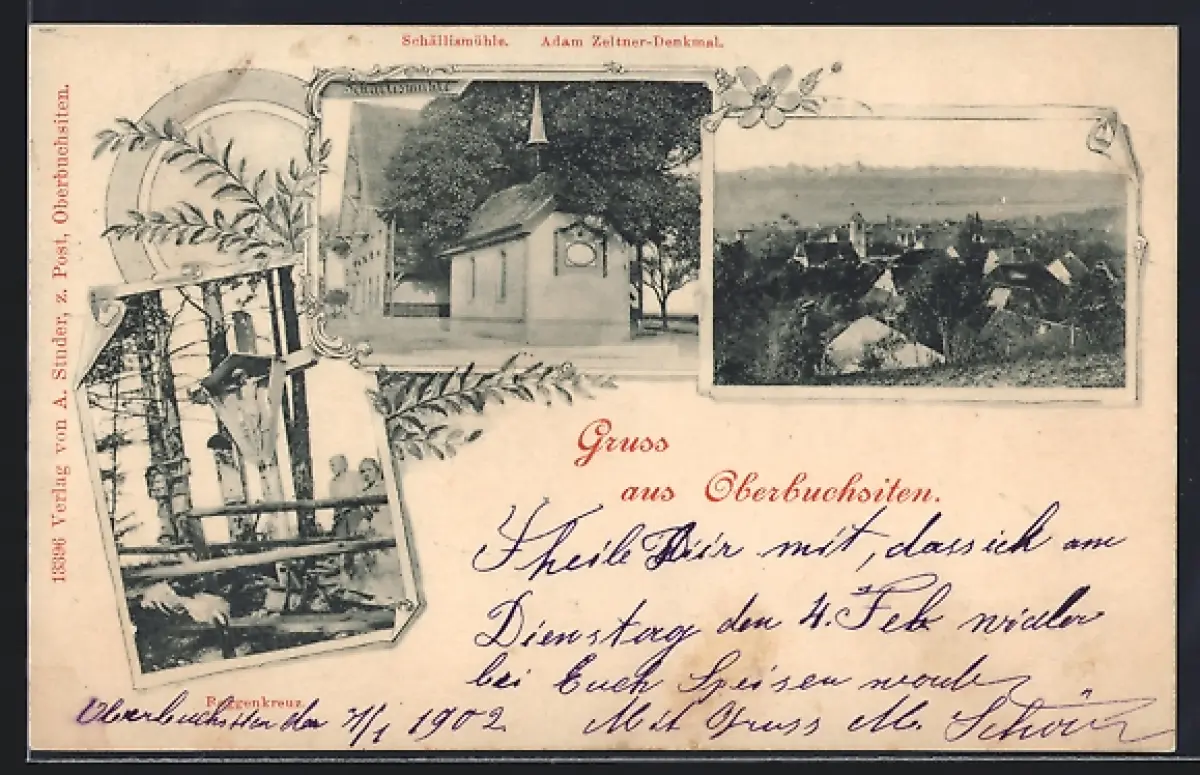 Schällismühle. Adam Zeltner-Denkmal.
Schällismühle
13396 Verlag von A. Studer, z. Post, Oberbuchsiten.
Gruss
aus Oberbuchsiten.
Theile Dir mit, dass ich am
Dienstag den 4. Feb. wider
bei Euch Speisen werde
Roggenkreuz.
Oberbuchsiten den /1 1902 Mit Gruss M.